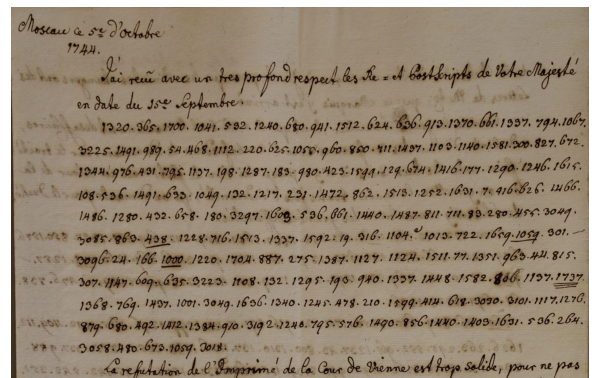 Moscau ce 5e d'Octobre
1744.
J'ai reçû avec un tres profond respect les Re = et PostScripts de Votre Majesté
en date du 15e Septembre.
1320. 365. 1700. 1041. 532. 1240. 680. 941. 1512. 624. 636. 913. 1370. 661. 1337. 794. 1067.
3225. 1491. 989. 54. 468. 1112. 220. 625. 1055. 960. 850. 711. 1437. 1103. 1140. 1581. 300. 827. 672.
1344. 976. 431. 795. 1137. 198. 1287. 183. 980. 423. 1599. 129. 674. 1416. 177. 1290. 1246. 1615.
108. 536. 1491. 633. 1049. 132. 1217. 231. 1472. 862. 1513. 1252. 1631. 7. 916. 626. 1466.
1486. 1280. 432. 658. 180. 3297. 1608. 536. 661. 1440. 1487. 811. 711. 83. 280. 455. 3049.
3085. 863. 438. 1228. 716. 1513. 1337. 1592. 19. 316. 1104. 1013. 722. 1659. 1059. 301.
3096. 24. 166. 1000. 1220. 1704. 887. 275. 1387. 1127. 1124. 1511. 77. 1351. 963. 44. 815.
307. 1147. 609. 635. 3223. 1108. 132. 1295. 193. 940. 1337. 1448. 1582. 866. 1137. 1737.
1368. 769. 1437. 1001. 3049. 1636. 1340. 1245. 478. 210. 1599. 414. 618. 3070. 3101. 1117. 1276.
879. 680. 492. 1412. 1384. 910. 3192. 1240. 795. 576. 1490. 856. 1440. 1403. 1631. 536. 264.
3058. 480. 673. 1059. 3018.
La refutation de l'Imprimé de la Cour de Vienne est trop solide, pour ne pas